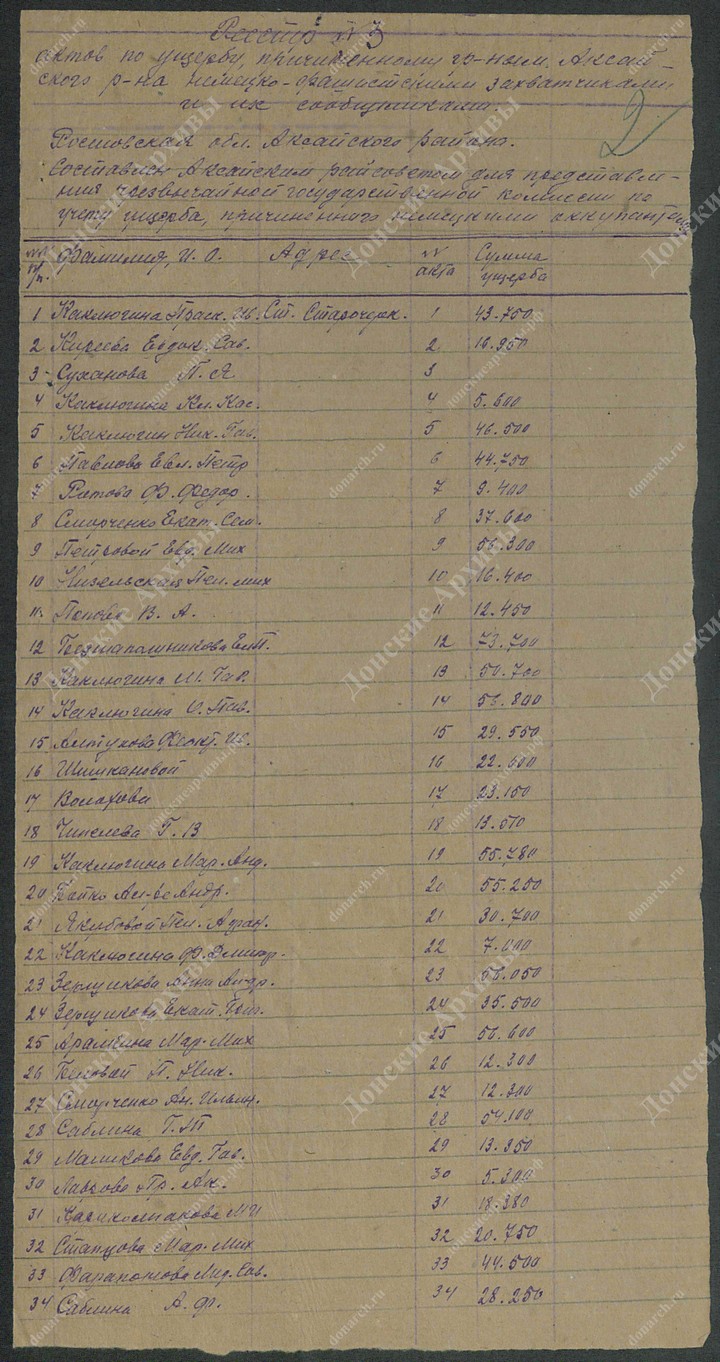 Реестр № 3
актов по ущербу, причиненному гр-ным Аксай-
ского р-на немецко-фашистскими захватчиками
и их сообщниками.
2
Ростовская обл. Аксайского района.
Составлен Аксайским райсоветом для представле-
ния чрезвычайной государственной комиссии по
учету ущерба, причиненного немецкими оккупантами
№№ п/п. Фамилия, И. О. Адрес № акта Сумма ущерба
1 Каклюгина Праск. Ив. Ст. Старочерк. 1 43.750
2 Киреева Евдок. Сав. 2 16.950
3 Суханова П. Я 3
4 Каклюгина Кл. Кас. 4 5.600
5 Каклюгин Ник. Гав. 5 46.500
6 Павлова Евл. Петр 6 44.750
7 Ритова Ф. Федор. 7 9.400
8 Сморченко Екат. Сем. 8 37.600
9 Петровой Евд. Мих 9 56.300
10 Пел. Мих 10 16.400
11 Попова В. А. 11 12.450
12 12 73.700
13 Каклюгина М. Гав. 13 50.700
14 Каклюгина О. Пав. 14 58.800
15 Алтухова Феокт. Ив. 15 29.550
16 Шишкановой 16 22.500
17 Волохова 17 23.150
18 Г. В 18
19 Каклюгина Мар. Анд. 19 55.780
20 Бойко Андр. 20 55.250
21 Якубовой Пел. Афан. 21 30.700
22 Каклюгина Ф. Дмитр. 22 7.000
23 Зерщикова Анна Андр. 23 56.050
24 Зерщикова Екат. 24 35.500
25 Мар. Мих 25 56.600
26 Беловой П. Ник. 26 12.300
27 Сморченко Ан. Ильин. 27 12.300
28 Саблина Г. П 28 54.100
29 Машкова Евд. Гав. 29 13.350
30 Пр. Ак. 30 5.300
31 М И 31 18.380
32 Стапцова Мар. Мих 32 20.750
33 Фарапонова Сав. 33 44.500
34 Саблина А. Ф. 34 28.250
Донские Архивы
donarch.ru
донскиеархивы.рф